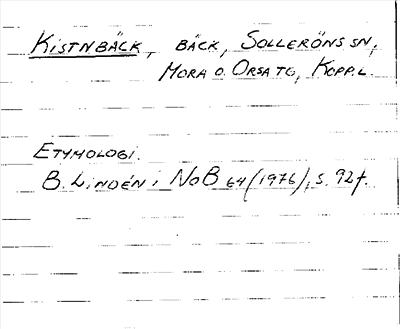 KISTNBÄCK, BÄCK, SOLLERÖNS SN,
MORA O. ORSA TG, KOPP.L.
ETYMOLOGI.
B. LINDÉN i NoB 64 (1976), s. 92f.